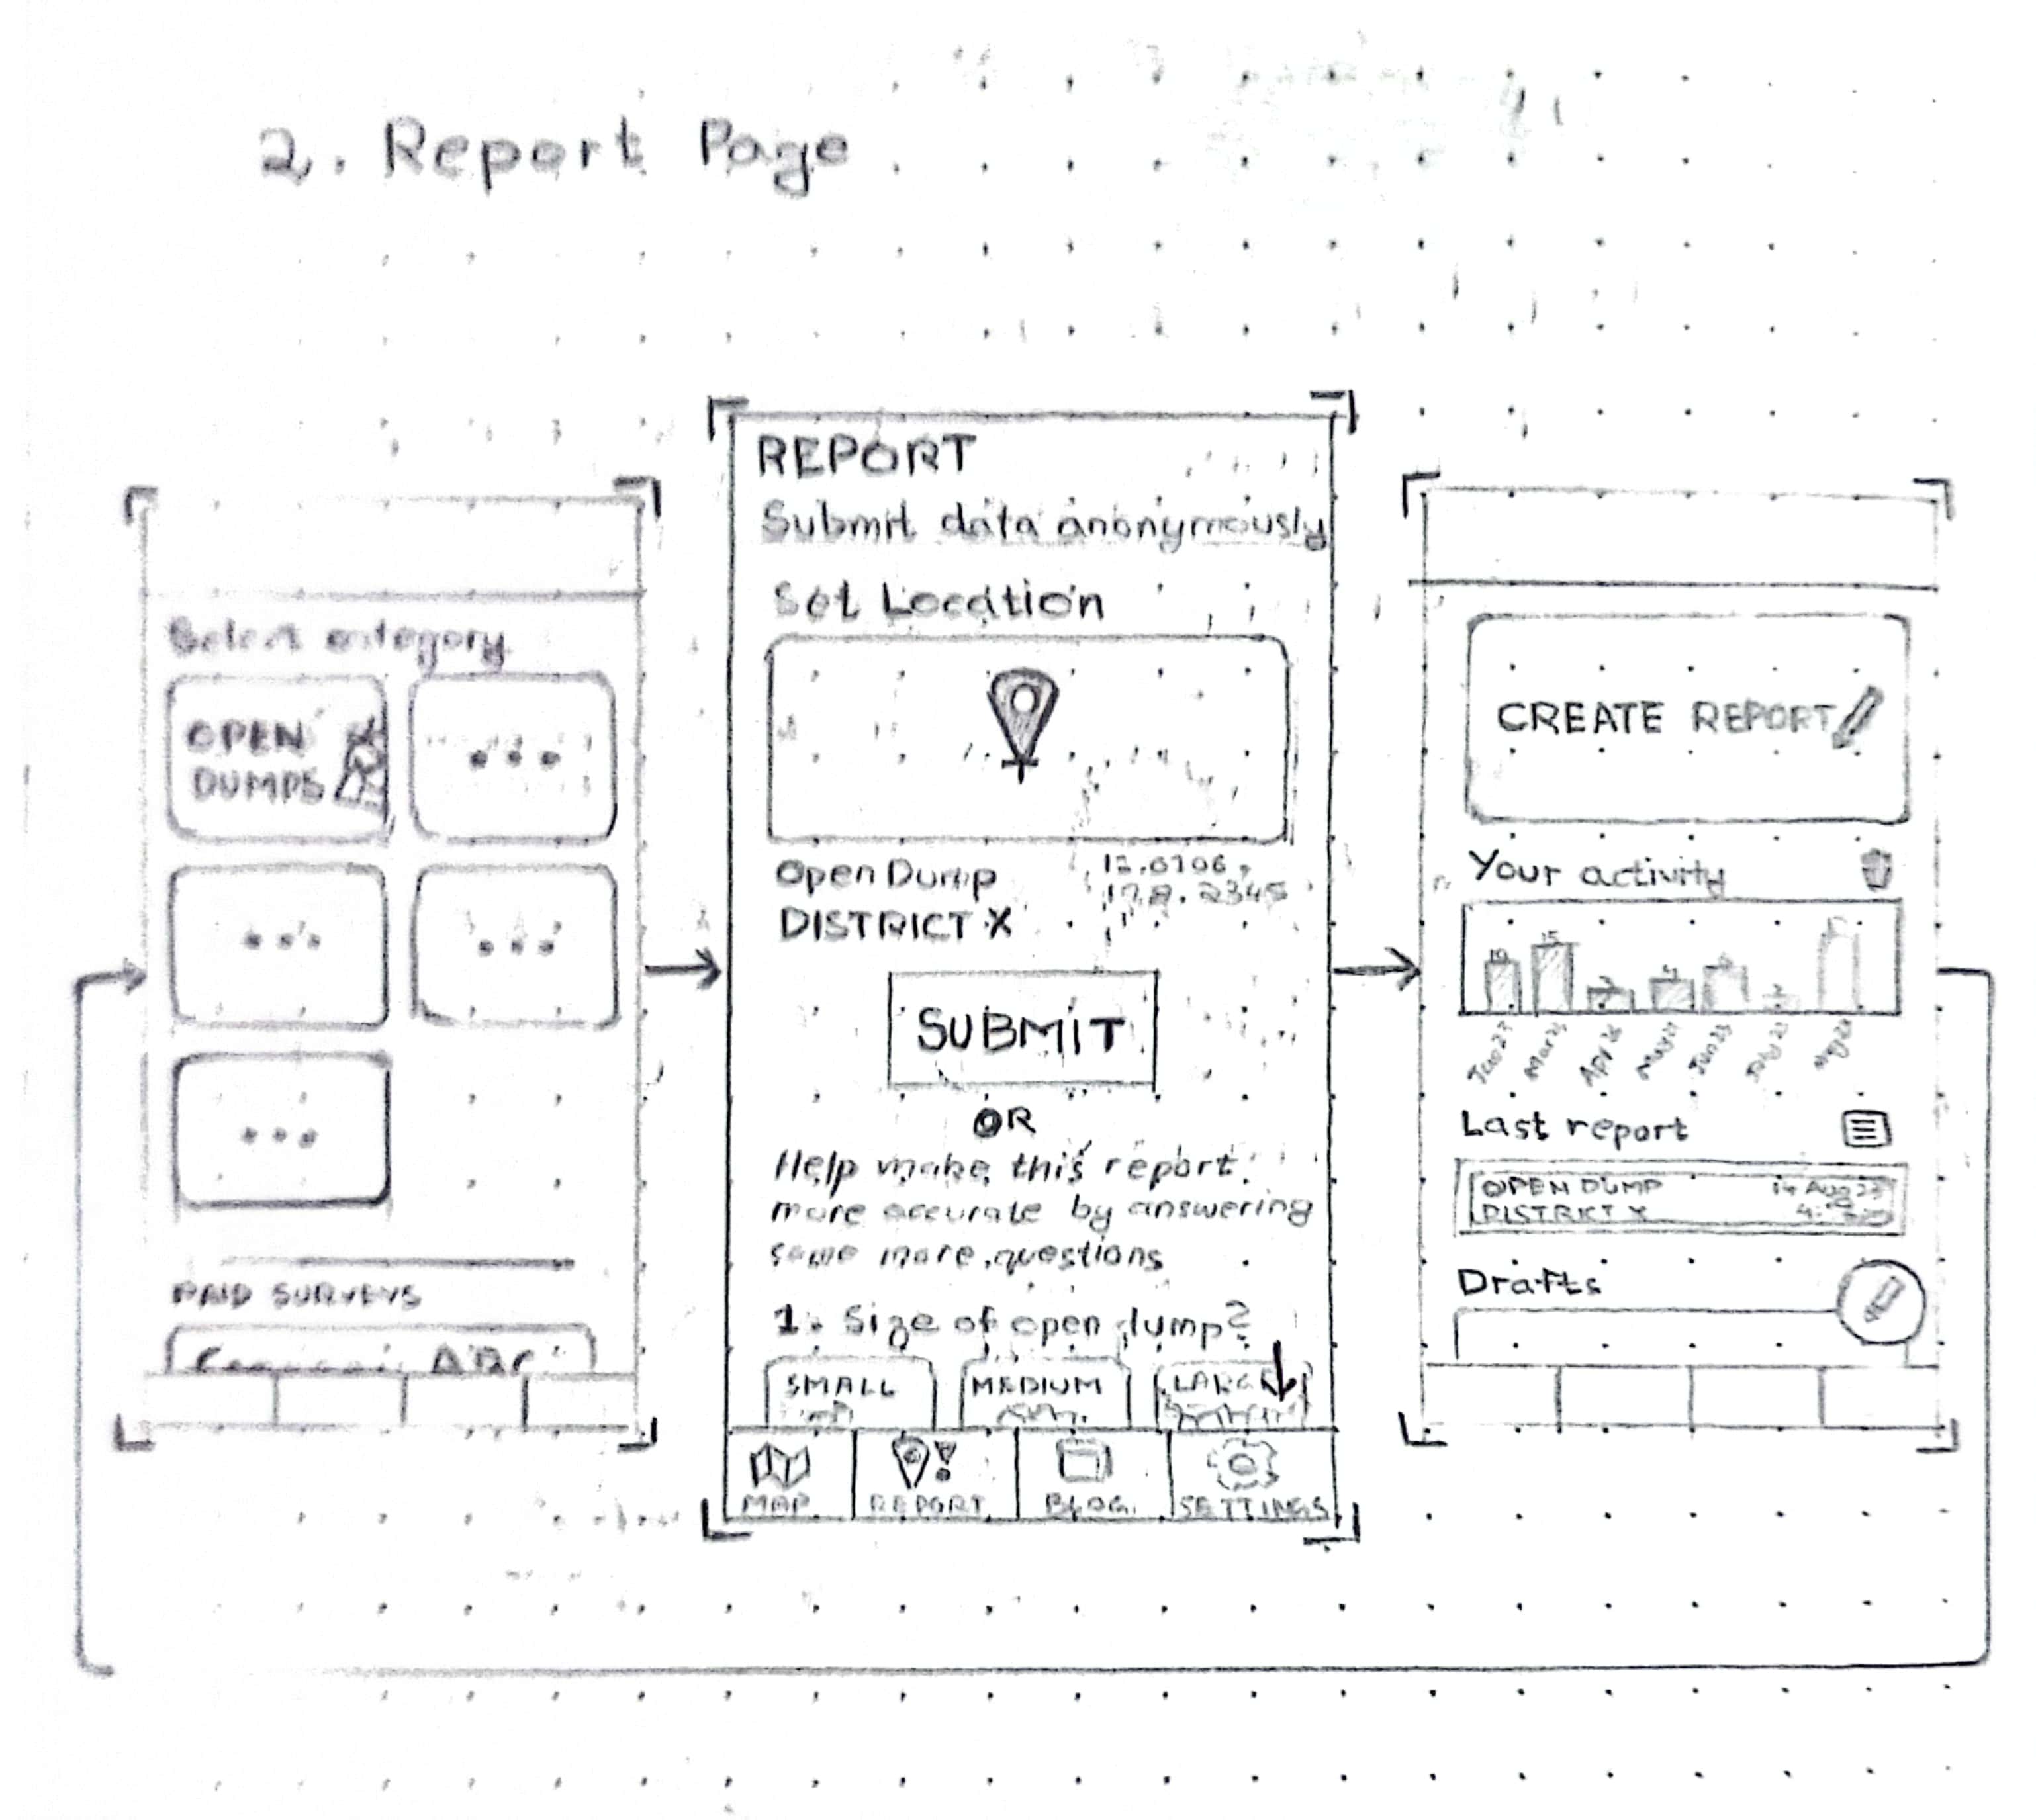 2. Report Page
Select category
OPEN
DUMPS
PAID SURVEYS
ABC
REPORT
Submit data anonymously
Set Location
Open Dump
DISTRICT X
SUBMIT
OR
Help make this report
more accurate by answering
some more questions
1. Size of open dump?
SMALL
MEDIUM
LARGE
MAP
REPORT
BLOG
SETTINGS
CREATE REPORT
Your activity
10
15
Mar 23
Last report
OPEN DUMP
14 Aug 23
DISTRICT X
Drafts